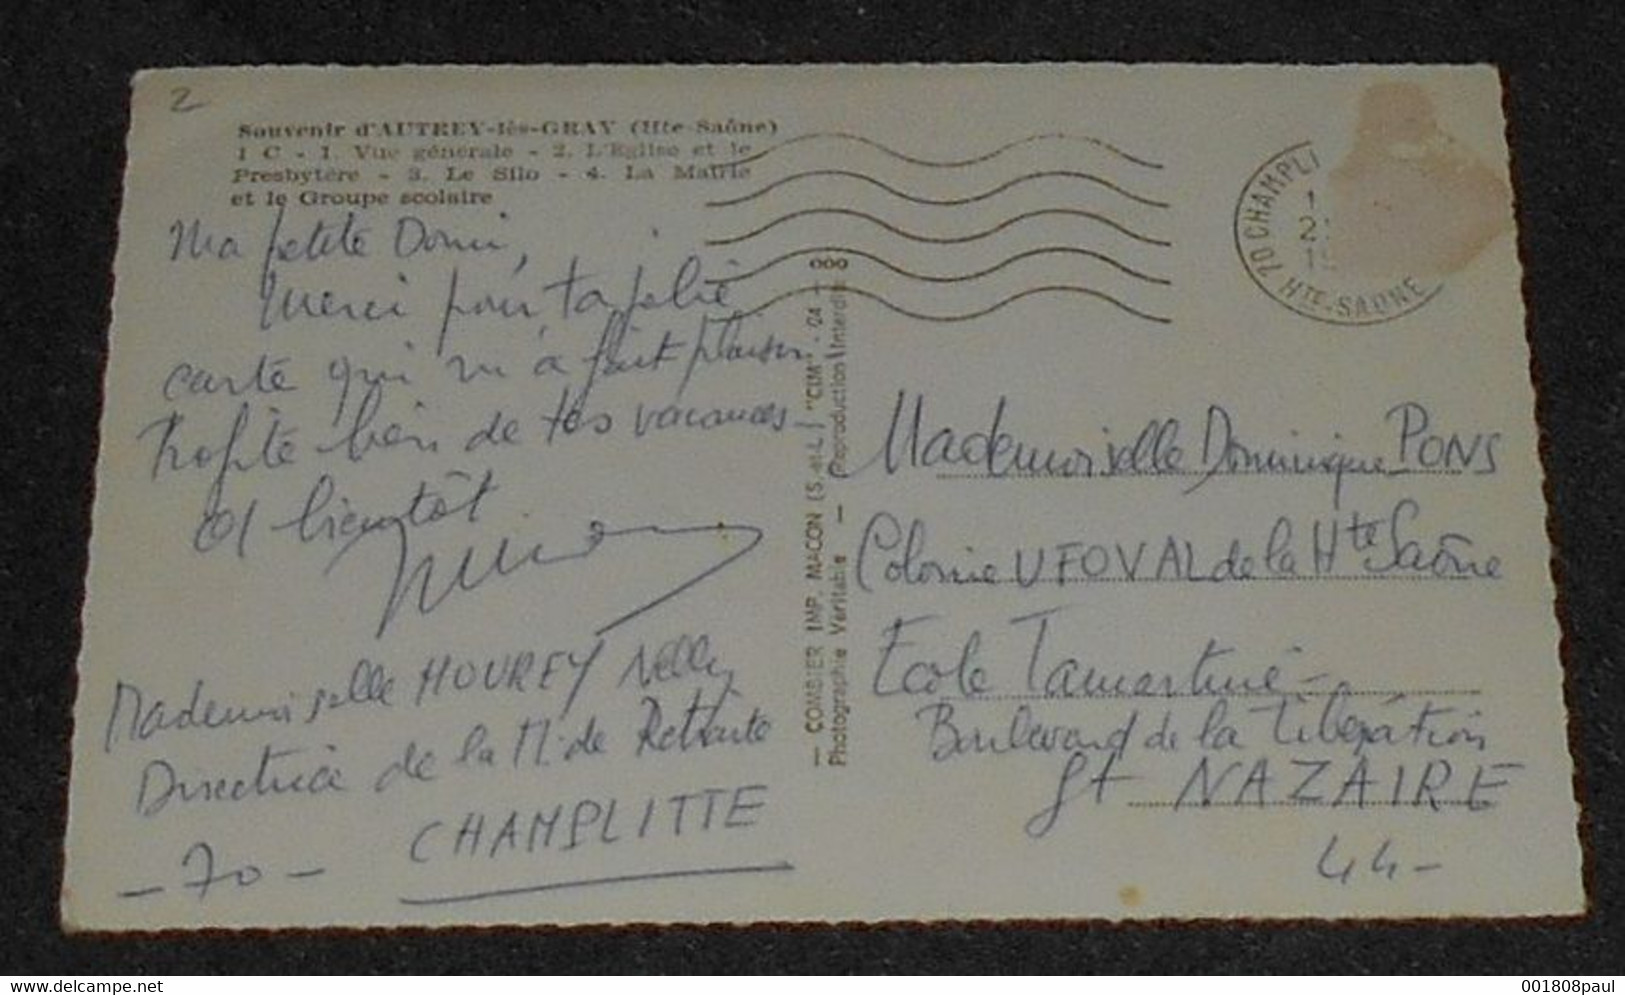 2
Souvenir d'AUTREY-lès-GRAY (Hte-Saône)
1 C - 1. Vue générale - 2. L'Eglise et le
Presbytère - 3. Le Silo - 4. La Mairie
et le Groupe scolaire
Ma petite Domi,
Merci pour ta jolie
carte qui m'a fait plaisir
Profite bien de tes vacances
A bientôt
Mademoiselle HOUREY Nelly
Directrice de la M. de Retraite
CHAMPLITTE
- 70 -
— COMBIER IMP. MACON (S.-et-L.) "CIM" - 04 -
Photographie Véritable — Reproduction Interdite
70 CHAMPLI
HTE-SAONE
Mademoiselle Dominique PONS
Colonie UFOVAL de la Hte Saône
Ecole Lamartine -
Boulevard de la Libération
St NAZAIRE
44 -
001808paul